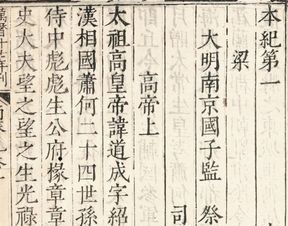 本紀第一
梁
大明南京國子監 祭
司
高帝上
太祖高皇帝諱道成字紹
漢相國蕭何二十四世孫
侍中彪彪生公府掾章章
史大夫望之望之生光祿